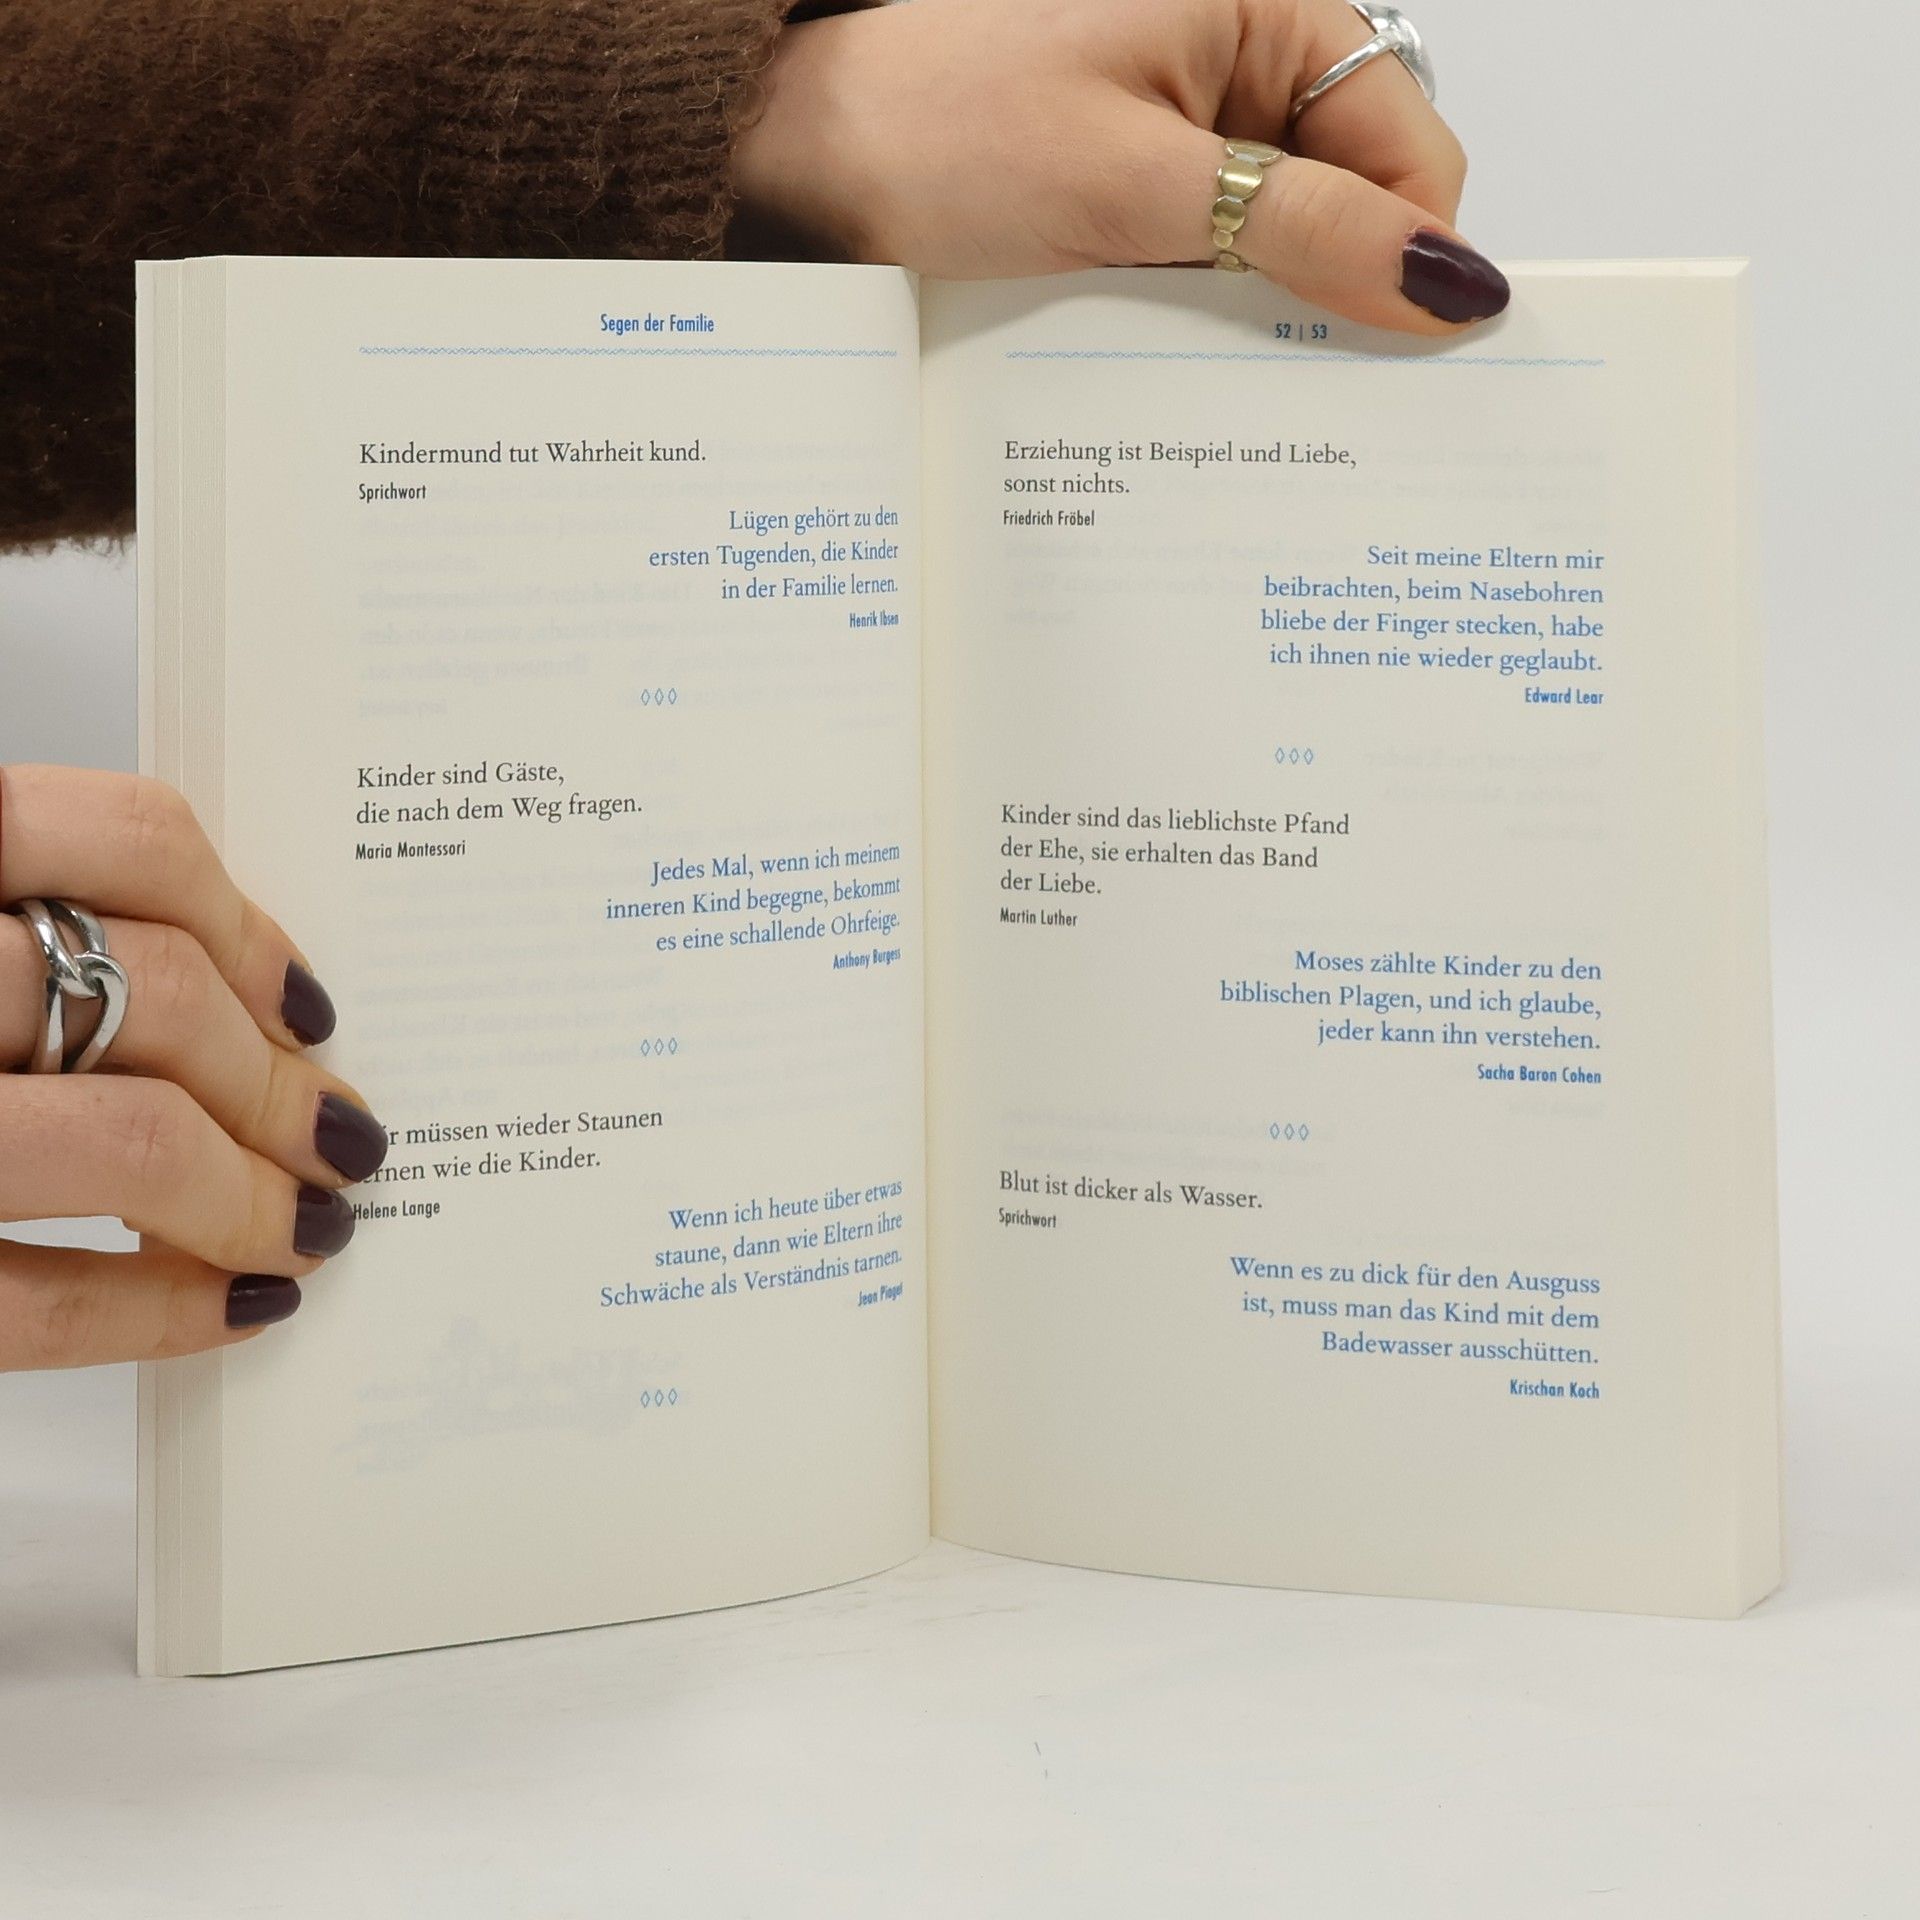 Segen der Familie
Kindermund tut Wahrheit kund.
Sprichwort
Lügen gehört zu den
ersten Tugenden, die Kinder
in der Familie lernen.
Henrik Ibsen
Kinder sind Gäste,
die nach dem Weg fragen.
Maria Montessori
Jedes Mal, wenn ich meinem
inneren Kind begegne, bekommt
es eine schallende Ohrfeige.
Anthony Burgess
müssen wieder Staunen
wie die Kinder.
Helene Lange
Wenn ich heute über etwas
staune, dann wie Eltern ihre
Schwäche als Verständnis tarnen.
Jean Piaget
52 | 53
Erziehung ist Beispiel und Liebe,
sonst nichts.
Friedrich Fröbel
Seit meine Eltern mir
beibrachten, beim Nasebohren
bliebe der Finger stecken, habe
ich ihnen nie wieder geglaubt.
Edward Lear
Kinder sind das lieblichste Pfand
der Ehe, sie erhalten das Band
der Liebe.
Martin Luther
Moses zählte Kinder zu den
biblischen Plagen, und ich glaube,
jeder kann ihn verstehen.
Sacha Baron Cohen
Blut ist dicker als Wasser.
Sprichwort
Wenn es zu dick für den Ausguss
ist, muss man das Kind mit dem
Badewasser ausschütten.
Krischan Koch